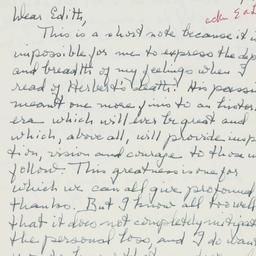 Dear Edith,
ack
This is a short note because it i
impossible for me to express the dep
and breadth of my feelings when I
read of Herbert's death. His passi
meant one more finis to an histor
era which will ever be great and
which, above all, will provide insp
tion, vision and courage to those w
follow. This greatness is one for
which we can all give profound
thanks. But I know all too well
that it does not completely mitigat
the personal loss, and I do want